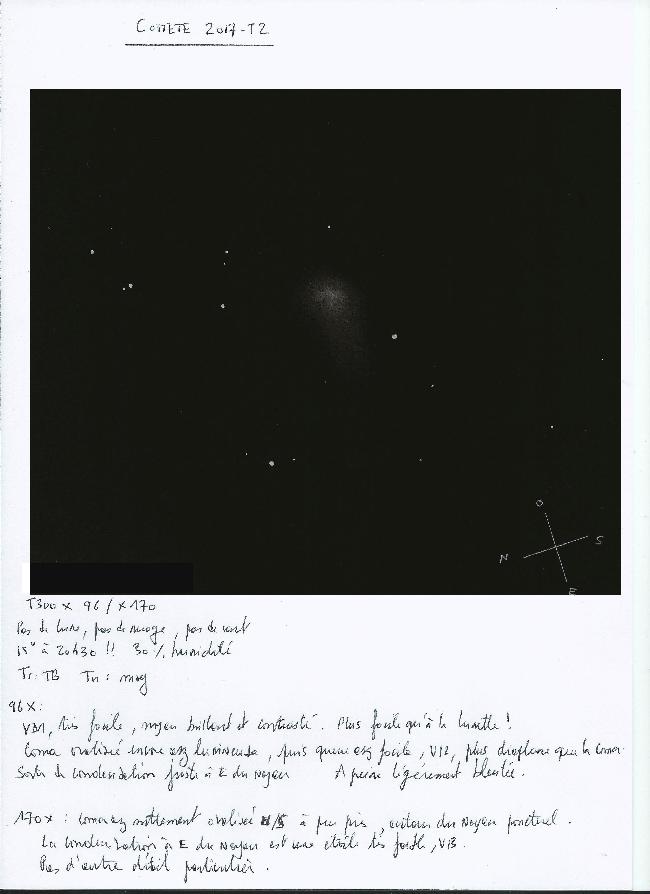 COMETE 2017-T2
O
N S
E
T300 x 96 / x 170
Pas de lune, pas de nuage, pas de vent
15° à 20h30 !! 30% humidité
Tr: TB Tu: moy
96x:
VB1, très facile, noyau brillant et contrasté. Plus facile qu'à la lunette !
Coma ovalisée encore assez lumineuse, puis queue assez facile, VI2, plus diaphane que la coma.
Sorte de condensation juste à E du noyau A peine légèrement bleutée.
170x: coma assez nettement ovalisée N/S à peu près, autour du noyau ponctuel.
La condensation à E du noyau est une étoile très faible, VI3.
Pas d'autre détail particulier.